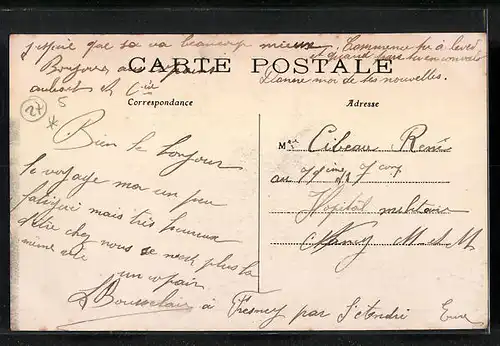 j'espère que sa va beaucoup mieux
Commence tu à levé
Bonjour aux copains
Donne moi de tes nouvelles.
CARTE POSTALE
Correspondance
Adresse
24
5
Bien le bonjour
le voyage ma un peu
fatigué mais très heureux
d'être chez nous se n'est plus la
même vie
un copain
à Fresney par St André Eure
Mr Cibeau René
au
Hôpital militaire
Nancy M et M